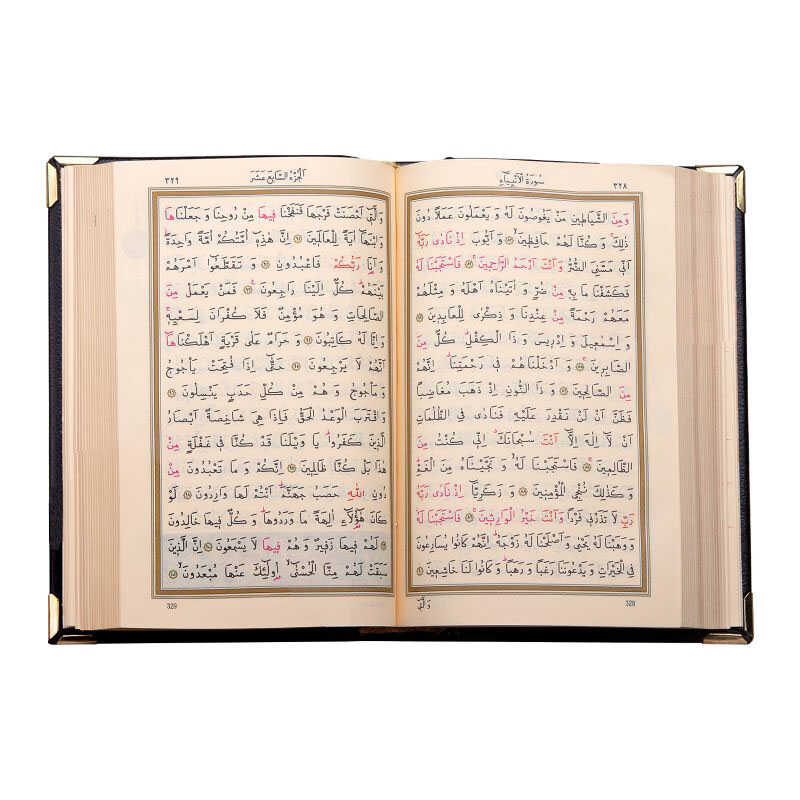 سورة الأنبياء
٣٢٨
وَمِنَ الشَّيَاطِينِ مَنْ يَغُوصُونَ لَهُ وَ يَعْمَلُونَ عَمَلًا دُونَ
ذٰلِكَ وَ كُنَّا لَهُمْ حَافِظِينَ ﴿٨٢﴾ وَ اَيُّوبَ اِذْ نَادٰى رَبَّهُ
اَنِّى مَسَّنِىَ الضُّرُّ وَ اَنْتَ اَرْحَمُ الرَّاحِمِينَ ﴿٨٣﴾ فَاسْتَجَبْنَا لَهُ
فَكَشَفْنَا مَا بِهِ مِنْ ضُرٍّ وَ اٰتَيْنَاهُ اَهْلَهُ وَ مِثْلَهُمْ
مَعَهُمْ رَحْمَةً مِنْ عِنْدِنَا وَ ذِكْرٰى لِلْعَابِدِينَ ﴿٨٤﴾
وَ اِسْمٰعِيلَ وَ اِدْرِيسَ وَ ذَا الْكِفْلِ كُلٌّ مِنَ
الصَّابِرِينَ ﴿٨٥﴾ وَ اَدْخَلْنَاهُمْ فِى رَحْمَتِنَا اِنَّهُمْ
مِنَ الصَّالِحِينَ ﴿٨٦﴾ وَ ذَا النُّونِ اِذْ ذَهَبَ مُغَاضِبًا
فَظَنَّ اَنْ لَنْ نَقْدِرَ عَلَيْهِ فَنَادٰى فِى الظُّلُمَاتِ
اَنْ لَا اِلٰهَ اِلَّا اَنْتَ سُبْحَانَكَ اِنِّى كُنْتُ مِنَ
الظَّالِمِينَ ﴿٨٧﴾ فَاسْتَجَبْنَا لَهُ وَ نَجَّيْنَاهُ مِنَ الْغَمِّ
وَ كَذٰلِكَ نُنْجِى الْمُؤْمِنِينَ ﴿٨٨﴾ وَ زَكَرِيَّا اِذْ نَادٰى رَبَّهُ
رَبِّ لَا تَذَرْنِى فَرْدًا وَ اَنْتَ خَيْرُ الْوَارِثِينَ ﴿٨٩﴾ فَاسْتَجَبْنَا لَهُ
وَ وَهَبْنَا لَهُ يَحْيٰى وَ اَصْلَحْنَا لَهُ زَوْجَهُ اِنَّهُمْ كَانُوا يُسَارِعُونَ
فِى الْخَيْرَاتِ وَ يَدْعُونَنَا رَغَبًا وَ رَهَبًا وَ كَانُوا لَنَا خَاشِعِينَ ﴿٩٠﴾
328
وَ الَّتِى
الجزء السابع عشر
٣٢٩
وَ الَّتِى اَحْصَنَتْ فَرْجَهَا فَنَفَخْنَا فِيهَا مِنْ رُوحِنَا وَ جَعَلْنَاهَا
وَ ابْنَهَا اٰيَةً لِلْعَالَمِينَ ﴿٩١﴾ اِنَّ هٰذِهِ اُمَّتُكُمْ اُمَّةً وَاحِدَةً
وَ اَنَا رَبُّكُمْ فَاعْبُدُونِ ﴿٩٢﴾ وَ تَقَطَّعُوا اَمْرَهُمْ
بَيْنَهُمْ كُلٌّ اِلَيْنَا رَاجِعُونَ ﴿٩٣﴾ فَمَنْ يَعْمَلْ مِنَ
الصَّالِحَاتِ وَ هُوَ مُؤْمِنٌ فَلَا كُفْرَانَ لِسَعْيِهِ
وَ اِنَّا لَهُ كَاتِبُونَ ﴿٩٤﴾ وَ حَرَامٌ عَلٰى قَرْيَةٍ اَهْلَكْنَاهَا
اَنَّهُمْ لَا يَرْجِعُونَ ﴿٩٥﴾ حَتّٰى اِذَا فُتِحَتْ يَاْجُوجُ
وَ مَاْجُوجُ وَ هُمْ مِنْ كُلِّ حَدَبٍ يَنْسِلُونَ ﴿٩٦﴾
وَ اقْتَرَبَ الْوَعْدُ الْحَقُّ فَاِذَا هِىَ شَاخِصَةٌ اَبْصَارُ
الَّذِينَ كَفَرُوا يَا وَيْلَنَا قَدْ كُنَّا فِى غَفْلَةٍ مِنْ
هٰذَا بَلْ كُنَّا ظَالِمِينَ ﴿٩٧﴾ اِنَّكُمْ وَ مَا تَعْبُدُونَ مِنْ
دُونِ اللهِ حَصَبُ جَهَنَّمَ اَنْتُمْ لَهَا وَارِدُونَ ﴿٩٨﴾ لَوْ
كَانَ هٰؤُلَاءِ اٰلِهَةً مَا وَرَدُوهَا وَ كُلٌّ فِيهَا خَالِدُونَ
﴿٩٩﴾ لَهُمْ فِيهَا زَفِيرٌ وَ هُمْ فِيهَا لَا يَسْمَعُونَ ﴿١٠٠﴾ اِنَّ الَّذِينَ
سَبَقَتْ لَهُمْ مِنَّا الْحُسْنٰى اُولٰئِكَ عَنْهَا مُبْعَدُونَ ﴿١٠١﴾
329